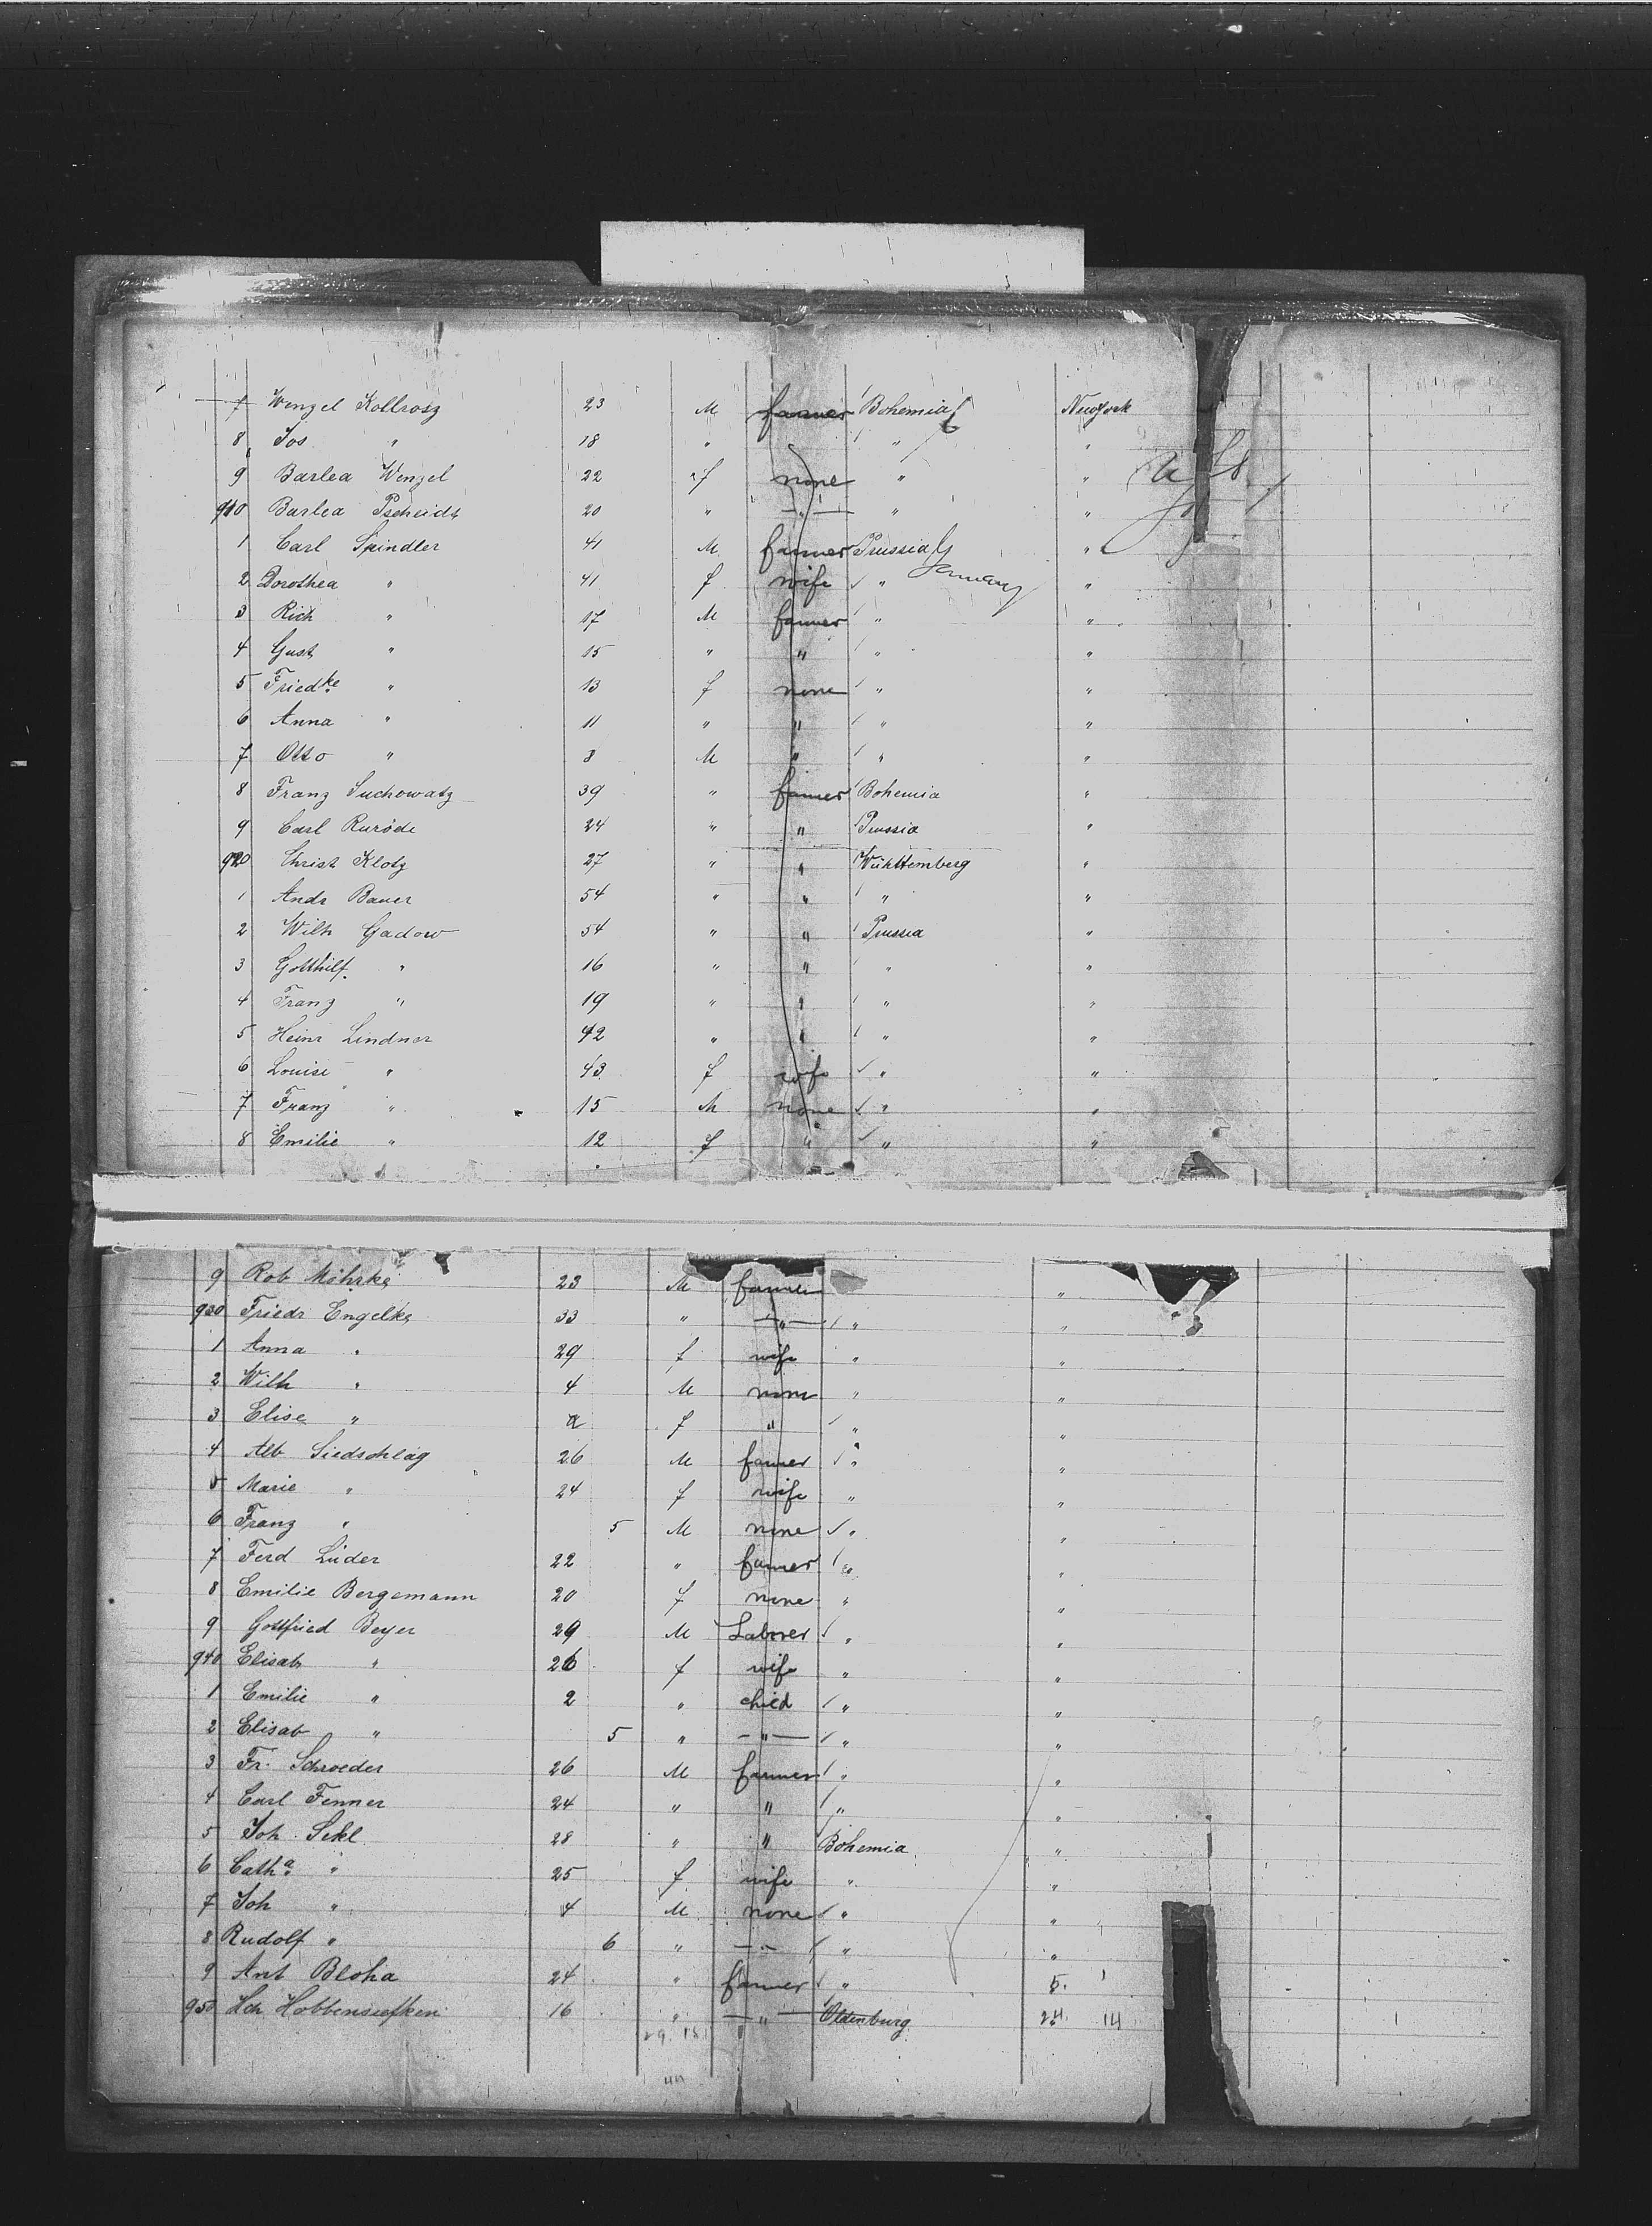 7 Wenzel Kollrosz 23 M farmer Bohemia NewYork
8 Jos " 18 " " "
9 Barlea Wenzel 22 f none " "
910 Barlea Pscheidt 20 " " " "
1 Carl Spindler 41 M farmer Prussia Germany "
2 Dorothea " 41 f wife " "
3 Rich " 17 M farmer " "
4 Gust " 15 " " " "
5 Friedke " 13 f none " "
6 Anna " 11 " " " "
7 Otto " 8 M " " "
8 Franz Suchowatz 39 " farmer Bohemia "
9 Carl Ruröde 24 " " Prussia "
920 Christ Klotz 27 " " Württemberg "
1 Andr Bauer 54 " " " "
2 Wilh Gadow 54 " " Prussia "
3 Gotthilf " 16 " " " "
4 Franz " 19 " " " "
5 Heinr Lindner 42 " " " "
6 Louise " 43 f wife " "
7 Franz " 15 M none " "
8 Emilie " 12 f " " "
9 Rob Möhrke 23 M farmer "
930 Friedr Engelke 33 " " " "
1 Anna " 29 f wife " "
2 Wilh " 4 M none " "
3 Elise " 2 f " " "
4 Alb Siedschlag 26 M farmer " "
5 Marie " 24 f wife " "
6 Franz " 5 M none " "
7 Ferd Lüder 22 " farmer " "
8 Emilie Bergemann 20 f none " "
9 Gottfried Beyer 29 M Laborer " "
940 Elisab " 26 f wife " "
1 Emilie " 2 " child " "
2 Elisab " 5 " " " "
3 Fr. Schroeder 26 M farmer " "
4 Carl Fenner 24 " " " "
5 Joh. Sekl 28 " " Bohemia "
6 Catha " 25 f wife " "
7 Joh " 4 M none " "
8 Rudolf " 6 " " " "
9 Ant Bloha 24 " farmer " 5. 1
950 Hch Hobbensiefken 16 " " Oldenburg 24 14